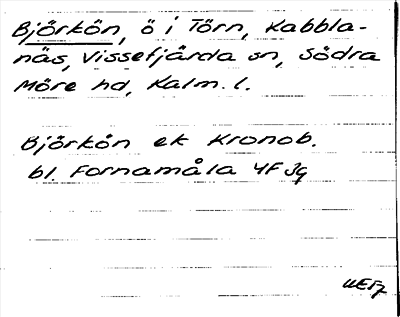 Björkön, ö i Törn, Kabbla-
näs, Vissefjärda sn, Södra
Möre hd, Kalm. l.
Björkön ek Kronob.
bl. Fornamåla 4F 3g